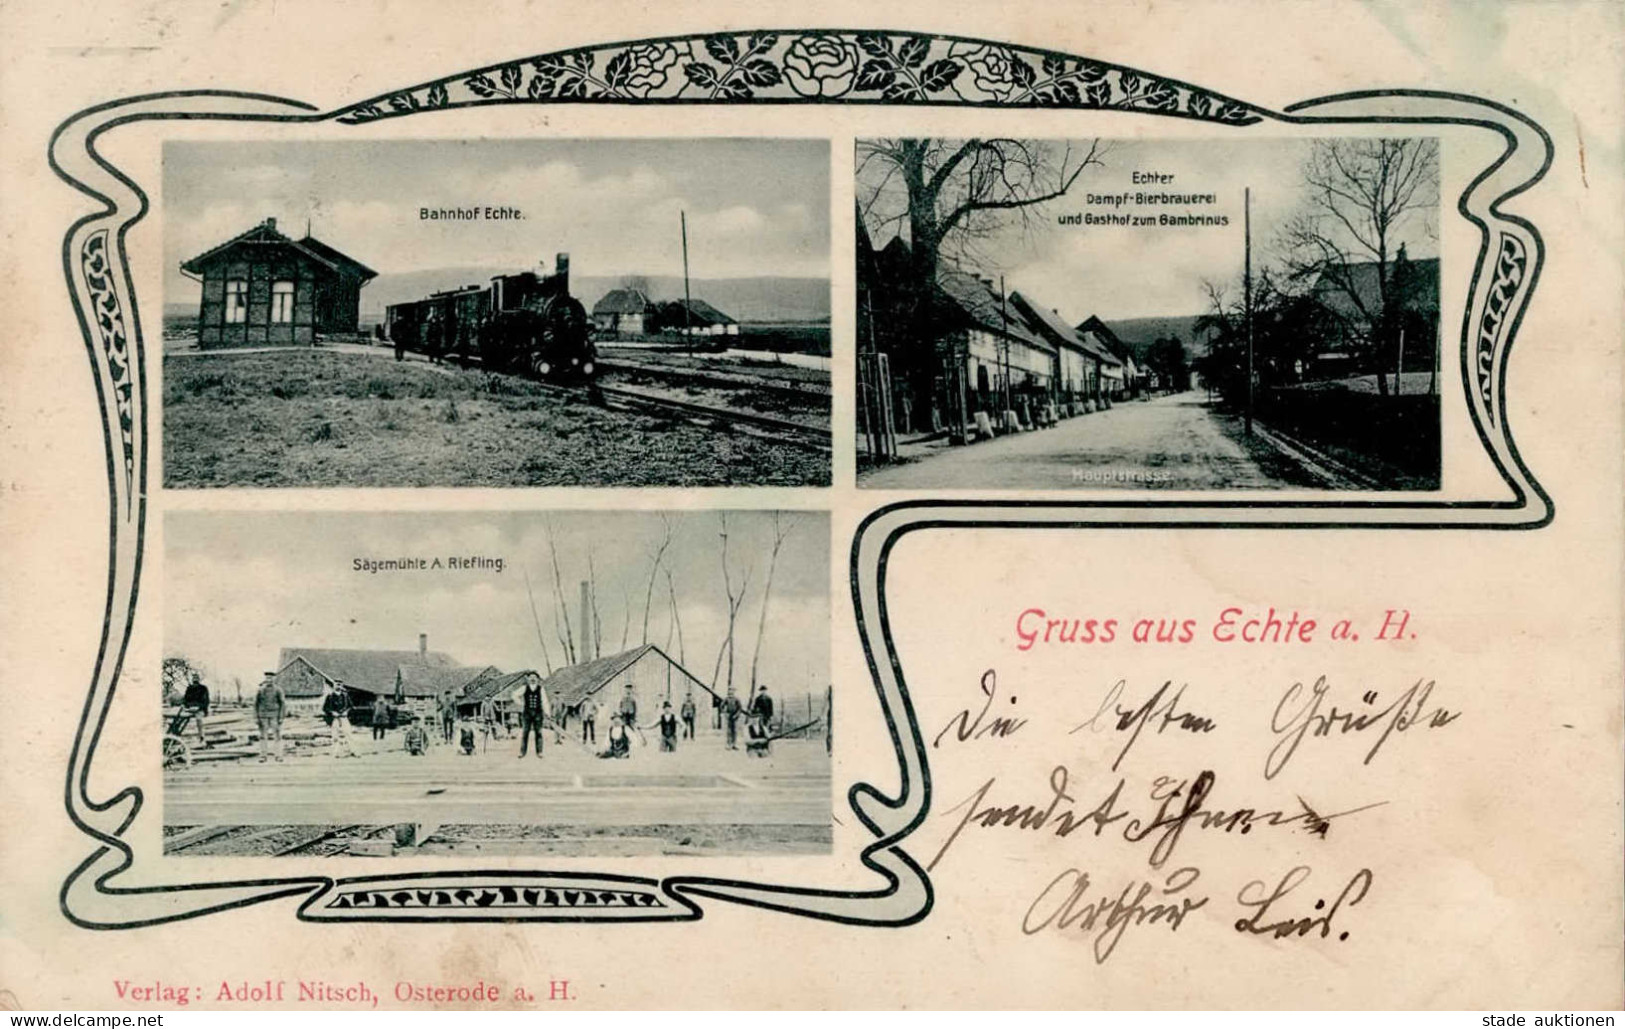 Bahnhof Echte.
Echter
Dampf-Bierbrauerei
und Gasthof zum Gambrinus
Hauptstrasse.
Sägemühle A. Riefling.
Gruss aus Echte a. H.
Die besten Grüße
sendet Ihnen
Arthur Leis.
Verlag: Adolf Nitsch, Osterode a. H.
www.delcampe.net
stade auktionen